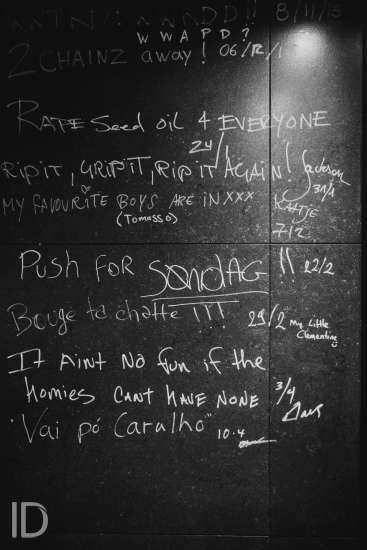 8/11/15
W W A P D ?
2 CHAINZ away! 06/12/1
RAPE Seed oil 4 EVERYONE
24/
RIP IT, GRIP IT, RIP IT AGAIN! Jackson
31/1
MY FAVOURITE BOYS ARE IN XXX KATJE
(Tomasso) 7/2
PUSH FOR SONDAG !! 22/2
Bouge ta chatte !!! 29/2 My Little
Clementine
It Aint No fun if the
homies CANT HAVE NONE 3/4
"Vai pó Caralho" 10.4
ID